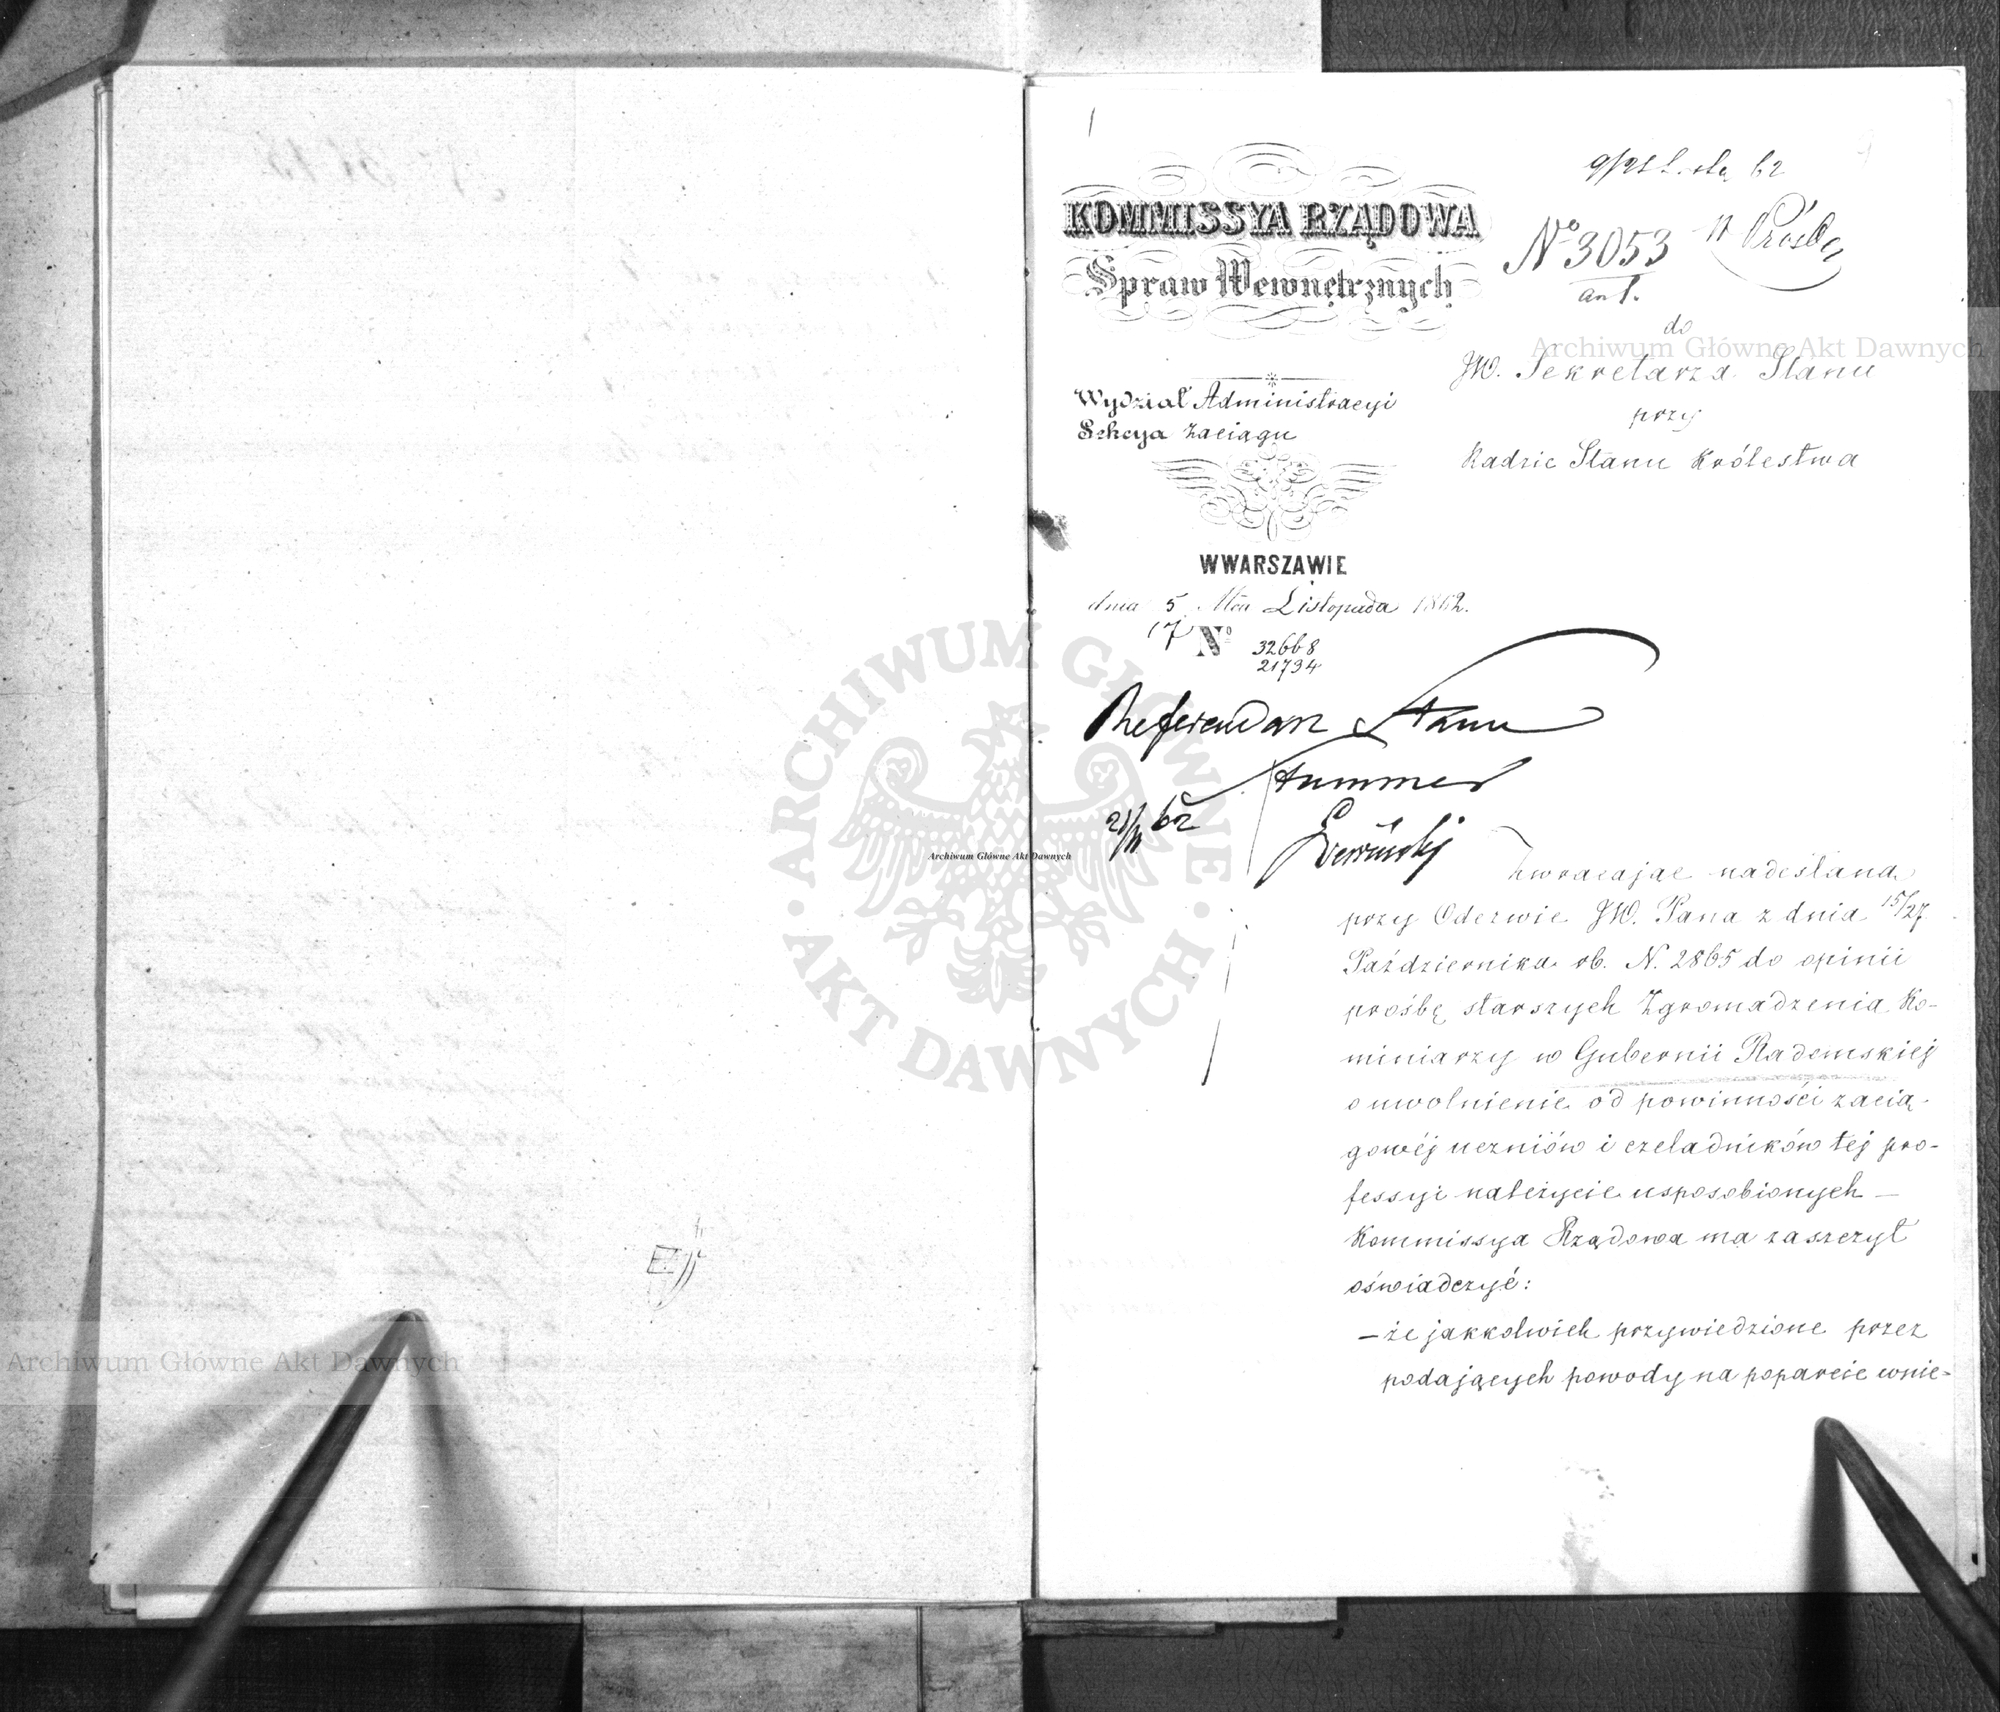 9/21 Listop. 62
KOMMISSYA RZĄDOWA
Spraw Wewnętrznych
№ 3053
ant.
Prośba
do
JW. Sekretarza Stanu
przy
Radzie Stanu Królestwa
Wydział Administracyi
Sekcya Zaciągu
W WARSZAWIE
dnia 5/17 Mca Listopada 1862.
№ 32668
21734
Referendarz Stanu
Hummel
21/XI 62
Zwracając nadesłaną
przy Odezwie JW. Pana z dnia 15/27
Października rb. N. 2865 do opinii
prośbę starszych Zgromadzenia Ko-
miniarzy w Gubernii Radomskiej
o uwolnienie od powinności zacią-
gowéj uczniów i czeladników tej pro-
fessyi należycie usposobionych —
Kommissya Rządowa ma zaszczyt
oświadczyć:
— że jakkolwiek przywiedzione przez
podających powody na poparcie wnie-
Archiwum Główne Akt Dawnych
Archiwum Główne Akt Dawnych
Archiwum Główne Akt Dawnych
ARCHIWUM GŁÓWNE AKT DAWNYCH